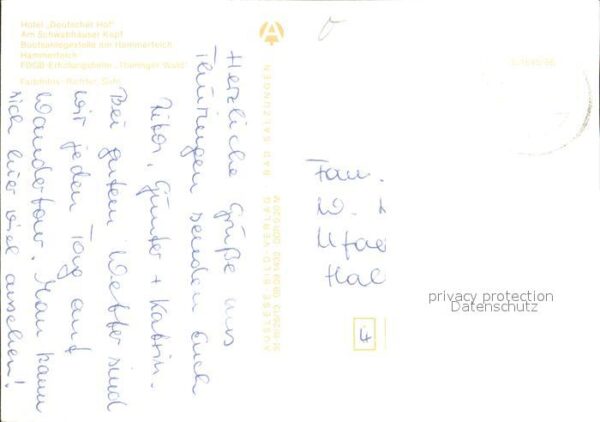 Hotel "Deutscher Hof"
Am Schwabhäuser Kopf
Bootsanlegestelle am Hammerteich
Hammerteich
FDGB-Erholungsheim "Thüringer Wald"
Farbfotos: Richter, Suhl
Herzliche Grüße aus
Thüringen senden Euch
Günter + Katrin.
Bei gutem Wetter sind
wir jeden Tag auf
Wandertour. Man kann
sich hier viel ansehen!
AUSLESE-BILD-VERLAG · BAD SALZUNGEN
Fam.
W.
Hal
4
privacy protection
Datenschutz